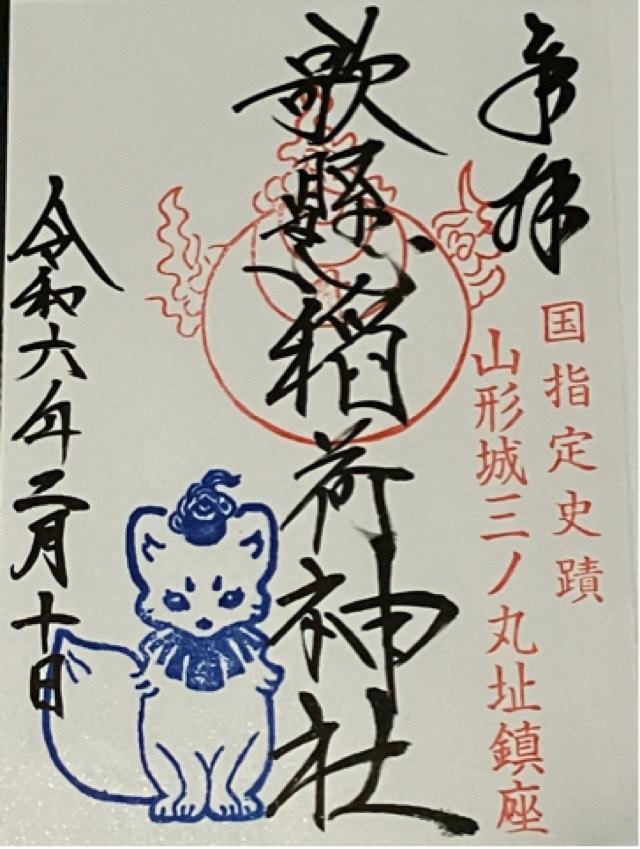 奉拝
国指定史蹟
山形城三ノ丸址鎮座
歌懸稲荷神社
令和六年二月十日